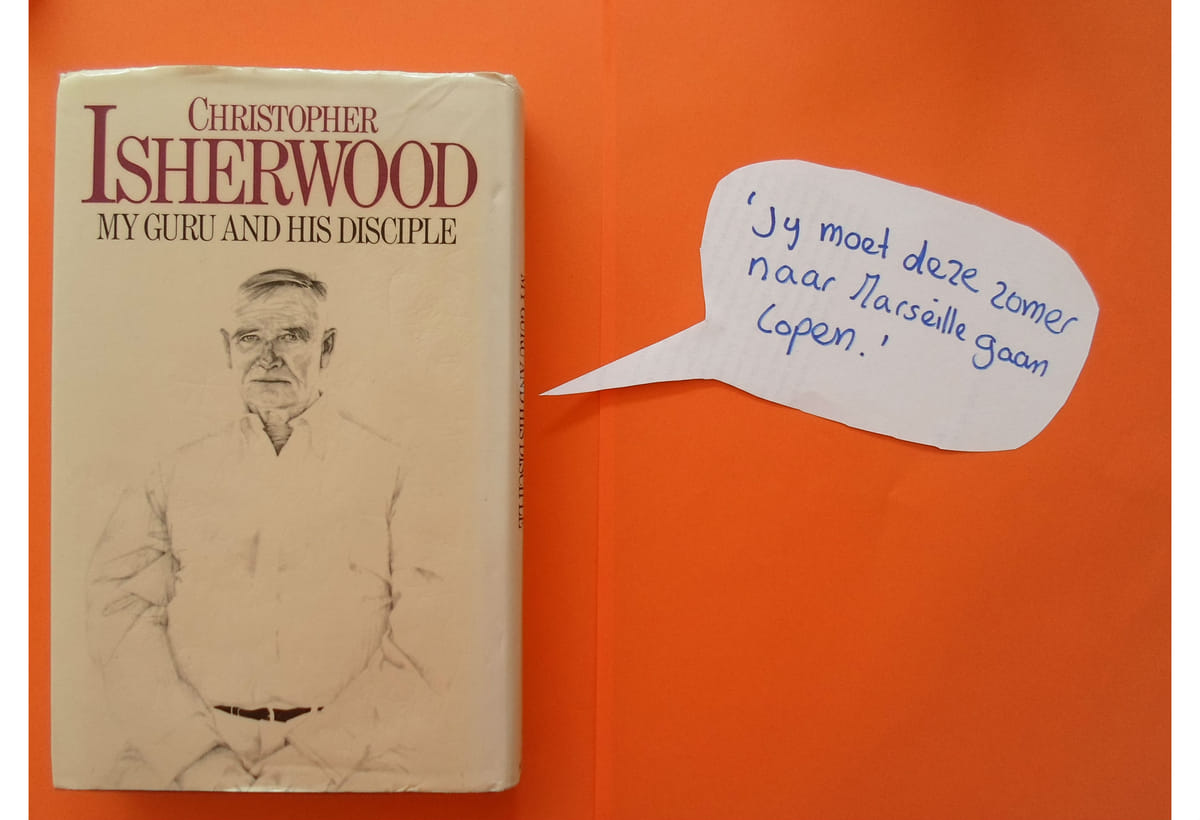 CHRISTOPHER
ISHERWOOD
MY GURU AND HIS DISCIPLE
MY GURU AND HIS DISCIPLE
'Jy moet deze zomer
naar Marseille gaan
lopen.'